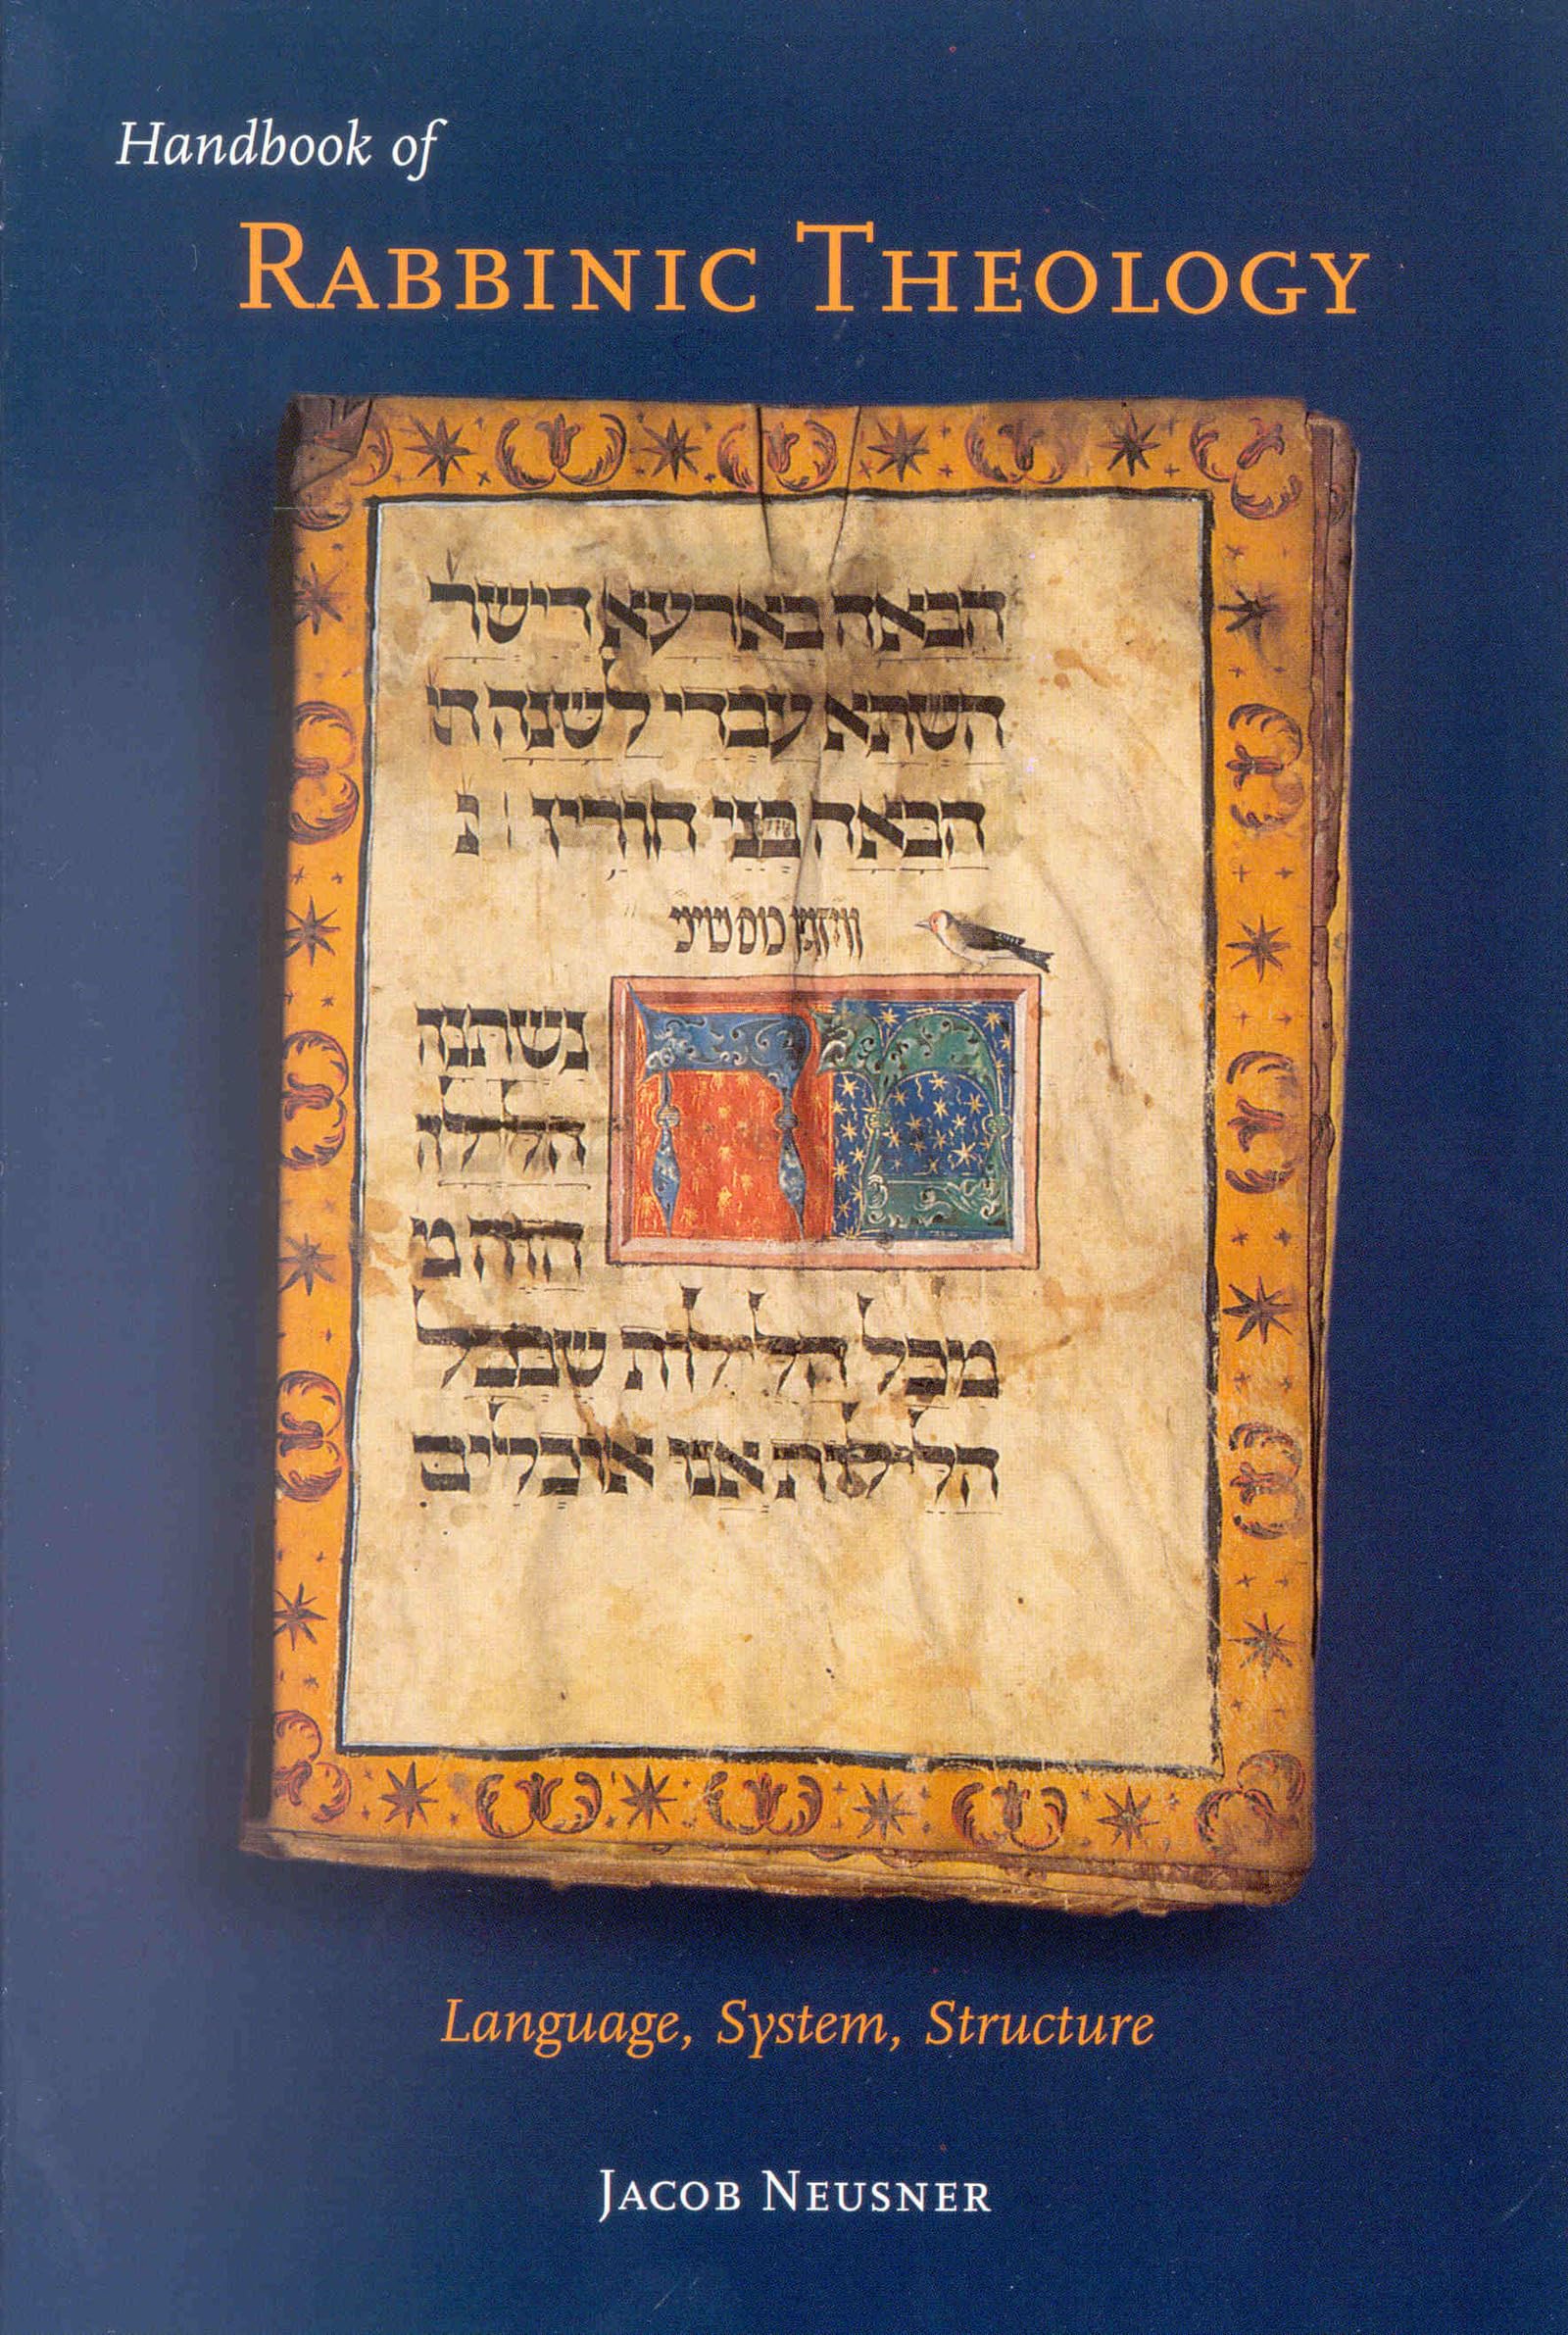 Handbook of
RABBINIC THEOLOGY
הבאה בארעא דישר
השתא עבדי לשנה
הבאה בני חורין נ
מה נשתנה
הלילה
הזה מ
מכל הלילות שבכל
הלילות אנו אוכלים
Language, System, Structure
JACOB NEUSNER